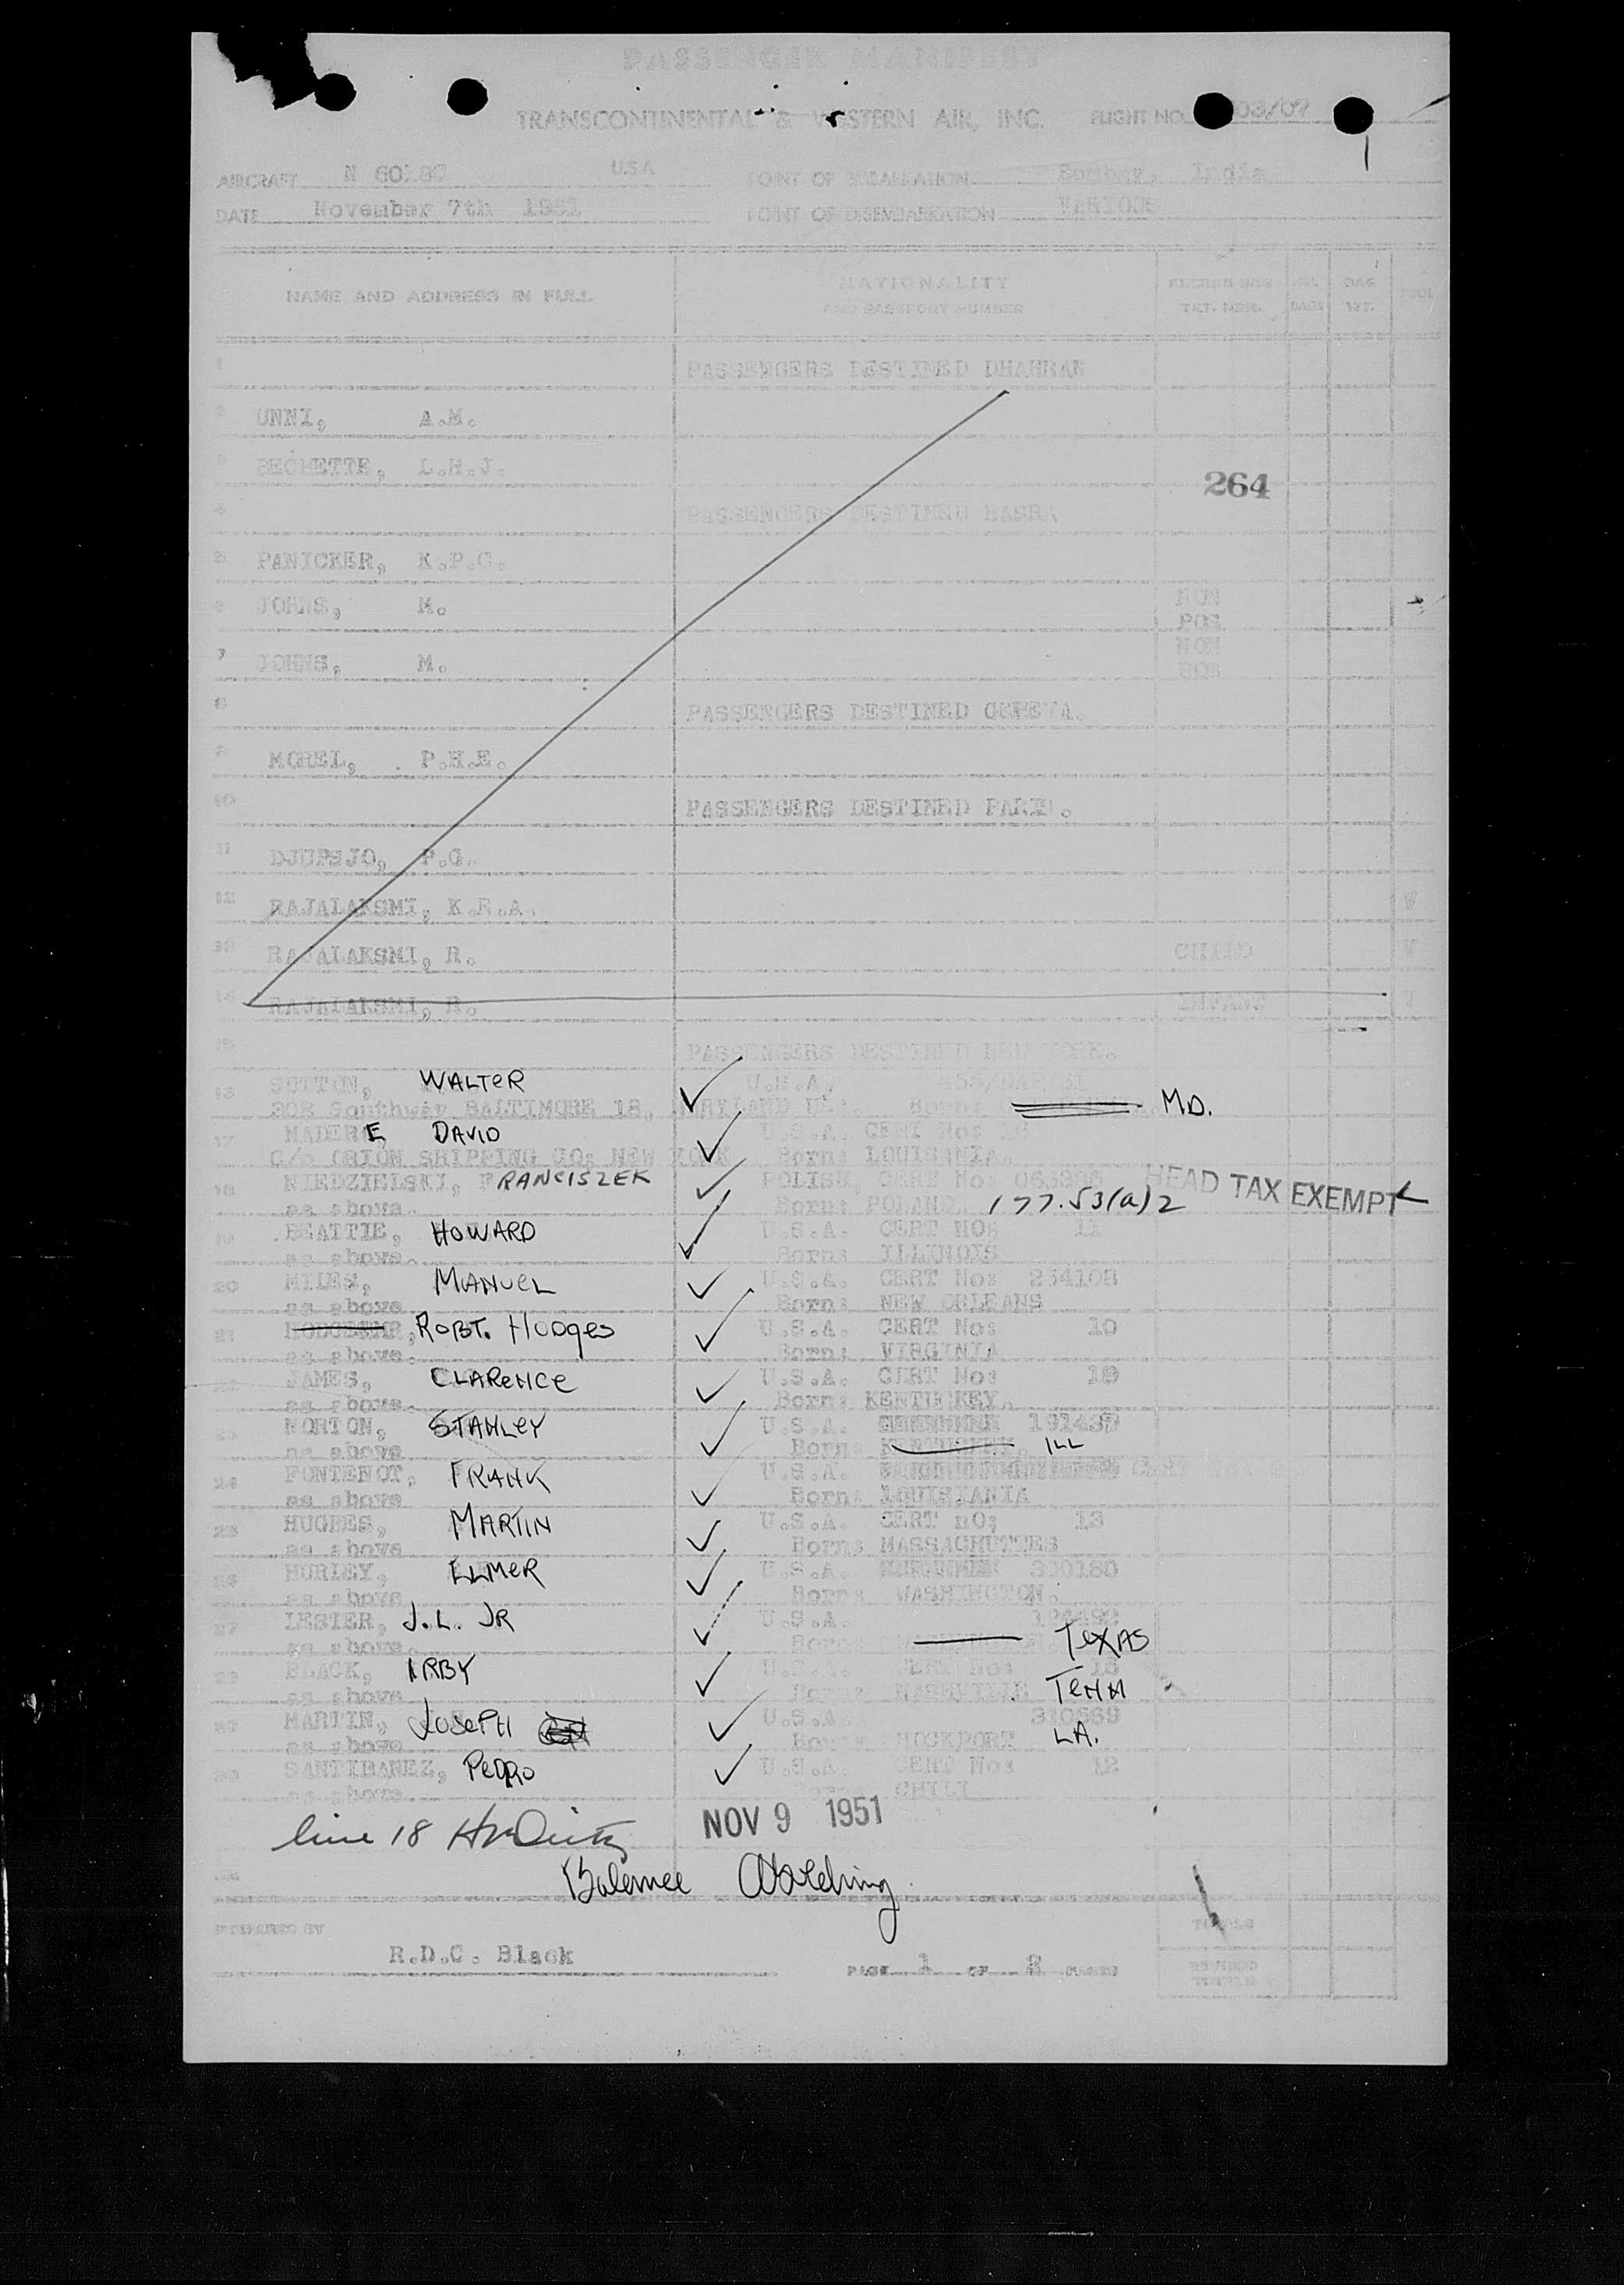 PASSENGER MANIFEST
TRANSCONTINENTAL & WESTERN AIR, INC. FLIGHT NO. 03/07
AIRCRAFT U.S.A POINT OF EMBARKATION Bombay, India
DATE November 7th 1951 POINT OF DISEMBARKATION VARIOUS
NAME AND ADDRESS IN FULL NATIONALITY AND PASSPORT NUMBER TKT. NBR. BAGS BAG WT.
1 PASSENGERS DESTINED DHAHRAN
2 UNNI, A.M.
3 BECHETTE, L.H.J.
264
4 PASSENGERS DESTINED BASRA
5 PANICKER, K.P.G.
6 JOHNS, M. NON POS
7 JOHNS, M. NON POS
8 PASSENGERS DESTINED GENEVA.
9 MOREL, P.H.E.
10 PASSENGERS DESTINED PARIS.
11 DJUPSJO, P.G.
12 RAJALAKSMI, K.R.A. V
13 RAJALAKSMI, R. CHILD V
14 RAJALAKSMI, R. INFANT V
15 PASSENGERS DESTINED NEW YORK.
16 SUTTON, WALTER U.S.A.
302 Southway BALTIMORE 18, MARYLAND Born: M.D.
17 MADERE DAVID U.S.A. CERT No:
C/o ORION SHIPPING CO; NEW YORK Born: LOUISANIA.
18 NIEDZIELSKI, FRANCISZEK POLISH, CERT No: HEAD TAX EXEMPT
as above. Born: POLAND. 177.53(a)2
19 BEATTIE, HOWARD U.S.A. CERT NO: 11
as above. Born: ILLINOIS
20 MILES, MANUEL U.S.A. CERT No: 254108
as above Born: NEW ORLEANS
21 ROBT. Hodges U.S.A. CERT No: 10
as above. Born: VIRGINIA
22 JAMES, CLARENCE U.S.A. CERT No: 18
as above. Born: KENTUCKEY.
23 NORTON, STANLEY U.S.A. 191439
as above Born: ILL
24 FONTENOT, FRANK U.S.A.
as above Born: LOUISIANIA
25 HUGHES, MARTIN U.S.A. CERT nO; 13
as above Born: MASSACHUTTES
26 HURLEY, ELMER U.S.A. 300180
as above Born: WASHINGTON.
27 LESTER, J.L. JR U.S.A.
as above. Born: TEXAS
28 BLACK, IRBY U.S.A. CERT No: 15
as above Born: NASHVILLE TENN
29 MARTIN, JOSEPH U.S.A. 310669
as above Born: LA.
30 SANTIBANEZ, PEDRO U.S.A. CERT No: 12
as above CHILI
line 18 NOV 9 1951
PREPARED BY TOTALS
R.D.C. Black PAGE 1 OF 2 PAGES